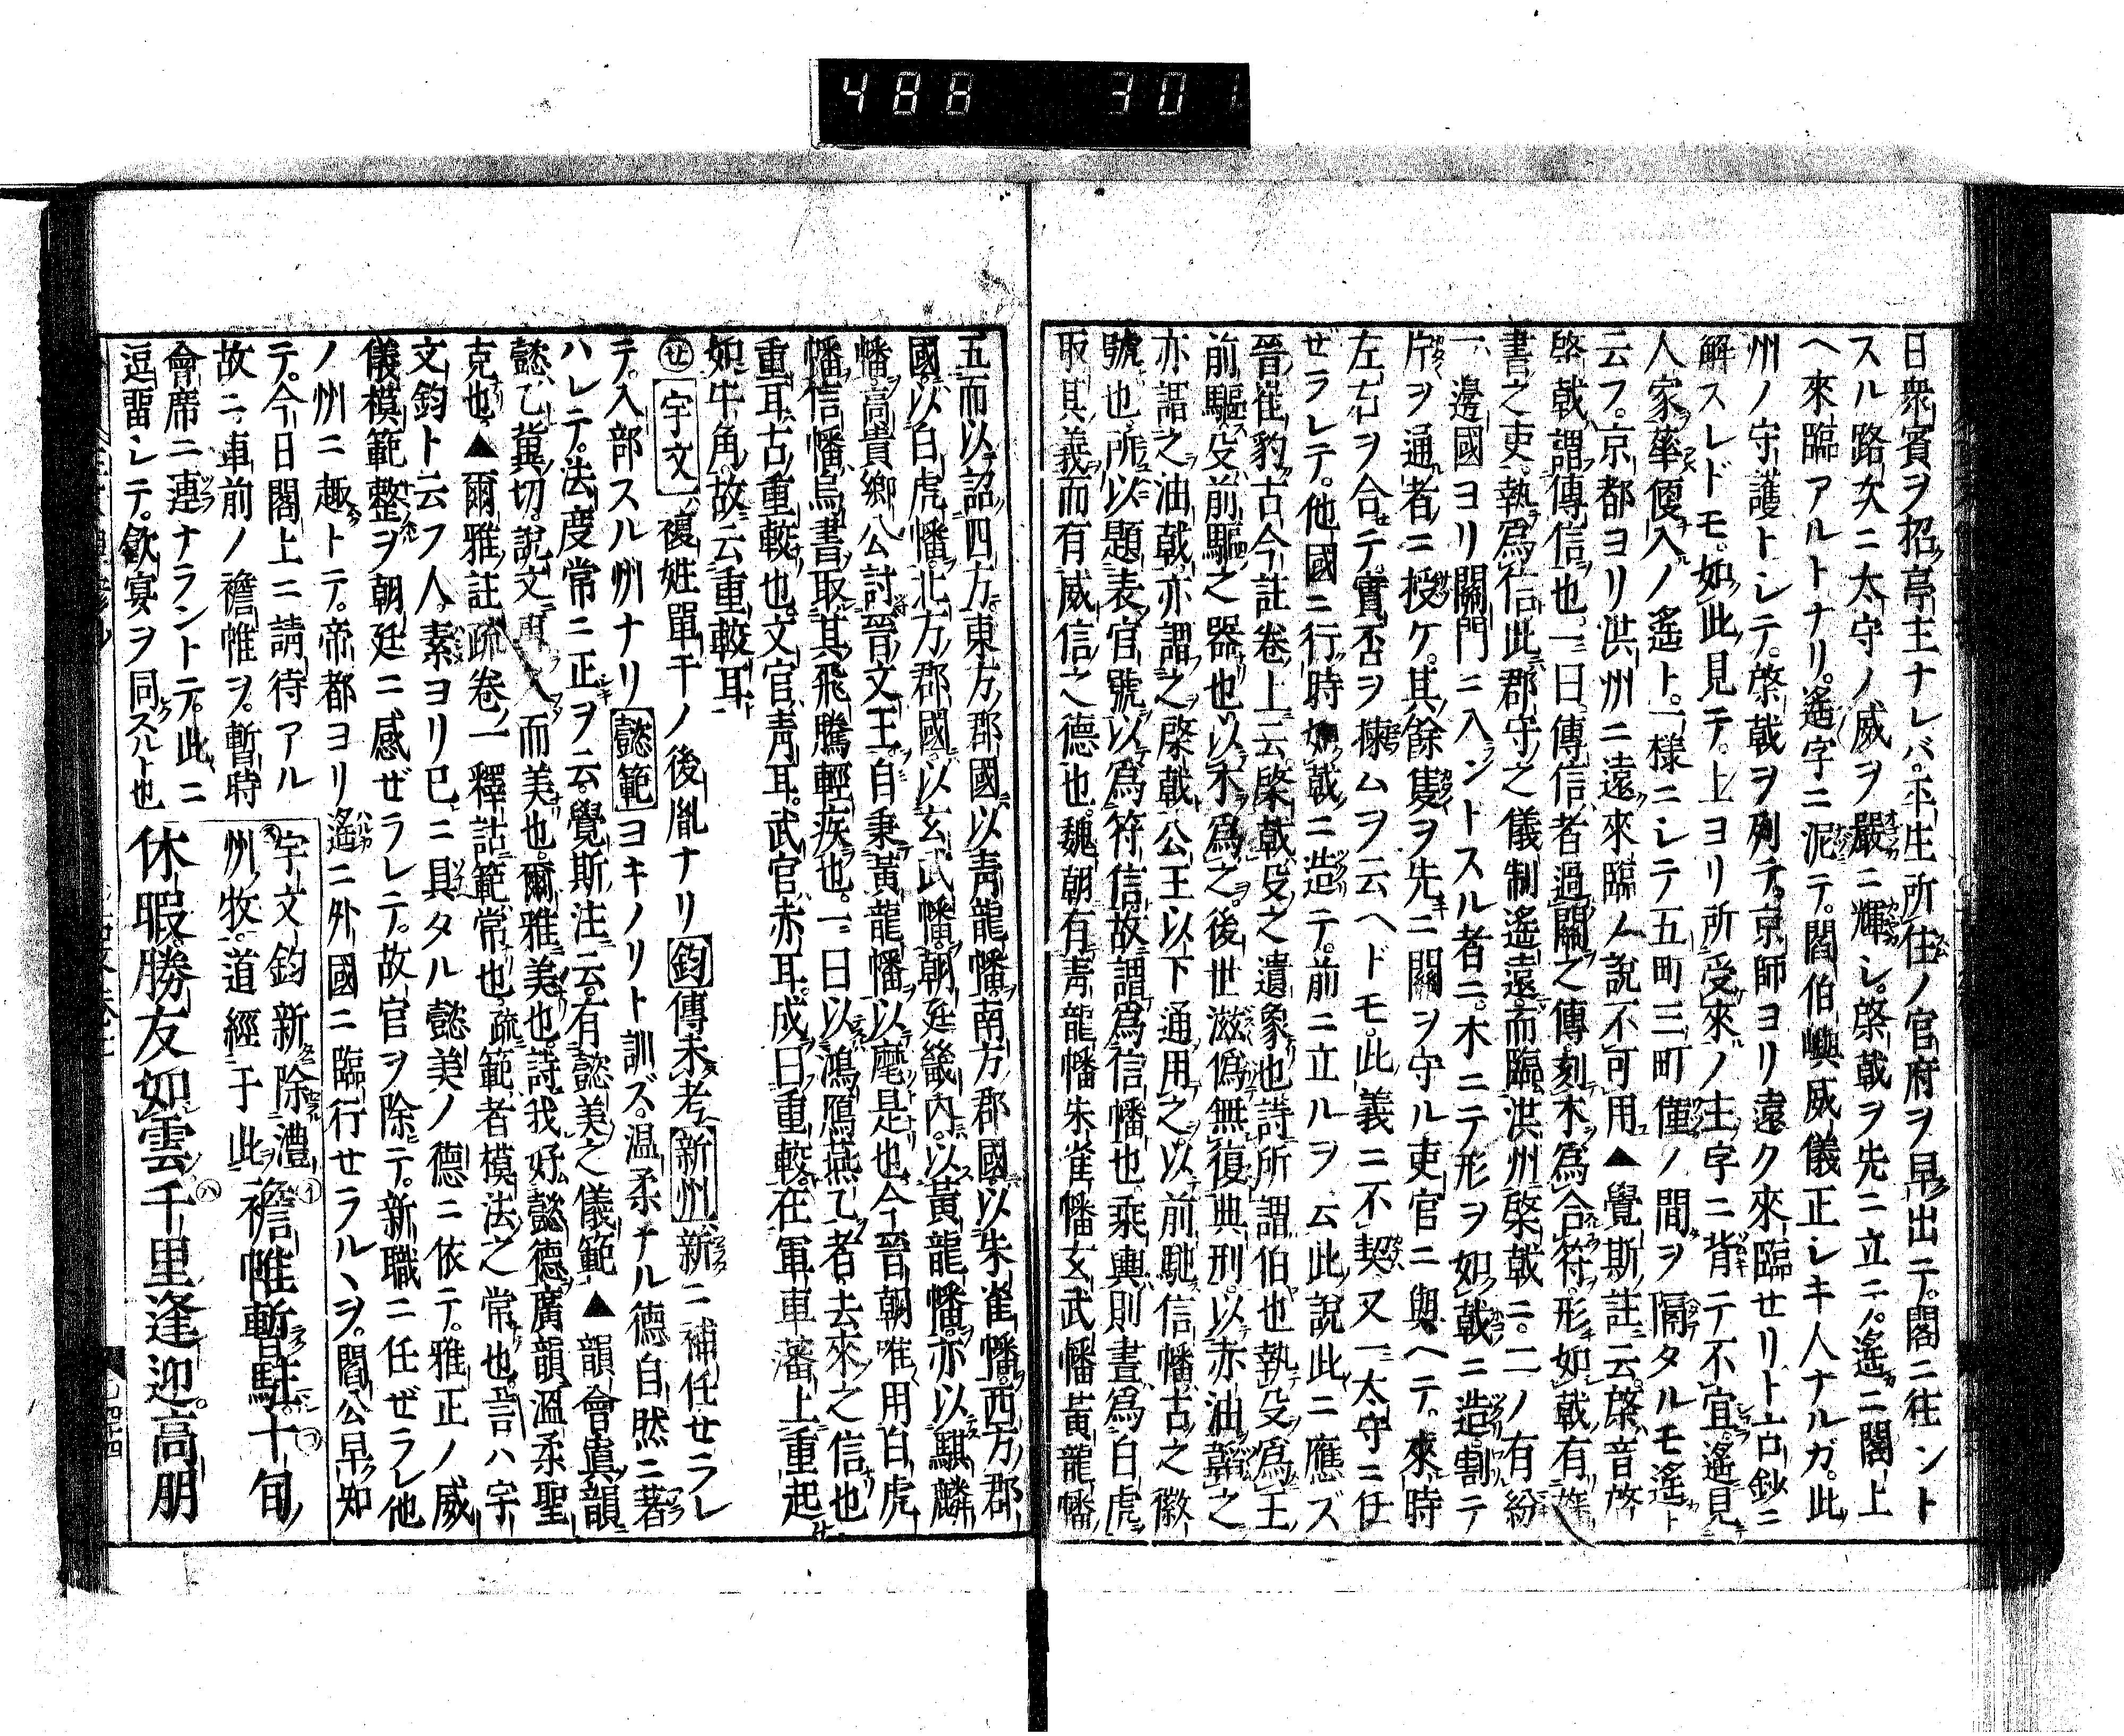 488 301
日衆賓ヲ招亭主ナレバ。平生所住ノ官府ヲ早出テ。閣ニ往ント
スル路次ニ太守ノ威ヲ嚴ニ輝シ。棨戟ヲ先ニ立ニ。遙ニ閣上
ヘ來臨アルトナリ。遙字ニ泥テ。閻伯嶼威儀正シキ人ナルガ。此
州ノ守護トシテ。棨戟ヲ列テ。京師ヨリ遠ク來臨セリト古鈔ニ
解スレドモ。如此見テ。上ヨリ所受來ノ主字ニ背テ不宜。遙見
人家華便入ノ遙ト。一樣ニシテ五町三町僅ノ間ヲ隔タルモ遙ト
云フ。京都ヨリ洪州ニ遠來臨ノ說不可用▲覺斯註云。棨音啓
棨戟謂傳信也。一曰傳信者過關之傳。刻木爲合符。形如戟有
書之吏執爲信此郡守之儀制遙遠而臨洪州棨戟ニ。二ノ有紛
一邊國ヨリ關門ニ入ントスル者ニ。木ニテ形ヲ如戟ニ造。割テ
片ヲ通者ニ授ケ。其餘隻ヲ先ニ關ヲ守ル吏官ニ與ヘテ。來時
左右ヲ合テ實否ヲ揀ムヲ云ヘドモ。此義ニ不契又一太守ニ任
ゼラレテ。他國ニ行時如戟ニ造テ。前ニ立ルヲ云此說此ニ應ズ
晉崔豹古今註卷上云。棨戟殳之遺象也詩所謂伯也執殳爲王
前驅殳前驅之器也以木爲之。後世滋僞無復典刑。以赤油韜之
亦謂之油戟亦謂之棨戟公王以下通用之以前馳信幡古之徽
號也所以題表官號以爲符信故謂爲信幡也乘輿則畫爲白虎
取其義而有威信之德也。魏朝有青龍幡朱雀幡玄武幡黃龍幡
五而以詔四方。東方郡國以青龍幡南方郡國以朱雀幡。西方郡
國以白虎幡。北方郡國以玄武幡。朝廷畿内以黃龍幡。亦以騏麟
幡。高貴鄉公討晉文王自秉黃龍幡以麾是也今晉朝唯用白虎
幡信幡鳥書取其飛騰輕疾也。一曰以鴻鴈燕乙者去來之信也
重耳古重較也。文官青耳。武官赤耳。或曰重較在軍車藩上重起
如牛角。故云重較耳
㋝宇文複姓單于ノ後胤ナリ懿範ヨキノリト訓ズ。温柔ナル德自然ニ著
ハレテ。法度常ニ正ヲ云。覺斯注云。有懿美之儀範▲韻會眞韻
懿乙冀切。說文而美也。爾雅美也。詩我好懿德廣韻溫柔聖
克也▲爾雅註疏卷一釋詁範常也疏範者模法之常也言ハ宇
文鈞ト云フ人。素ヨリ已ニ具タル懿美ノ德ニ依テ。雅正ノ威
儀模範整ヲ朝廷ニ感ゼラレテ。故官ヲ除テ。新職ニ任ゼラレ他
ノ州ニ趣トテ。帝都ヨリ遙ニ外國ニ臨行セラルヽヲ。閻公早知
テ。今日閣上ニ請待アル
故ニ車前ノ襜帷ヲ。暫時
會席ニ連ナラントテ。此ニ
逗畱シテ。飮宴ヲ同スルト也
鈞傳未考新州新ニ補任セラレ
テ。入部スル州ナリ
宇文鈞新除澧
州牧。道經于此
襜帷暫駐。十旬
休暇勝友如雲千里逢迎。高朋